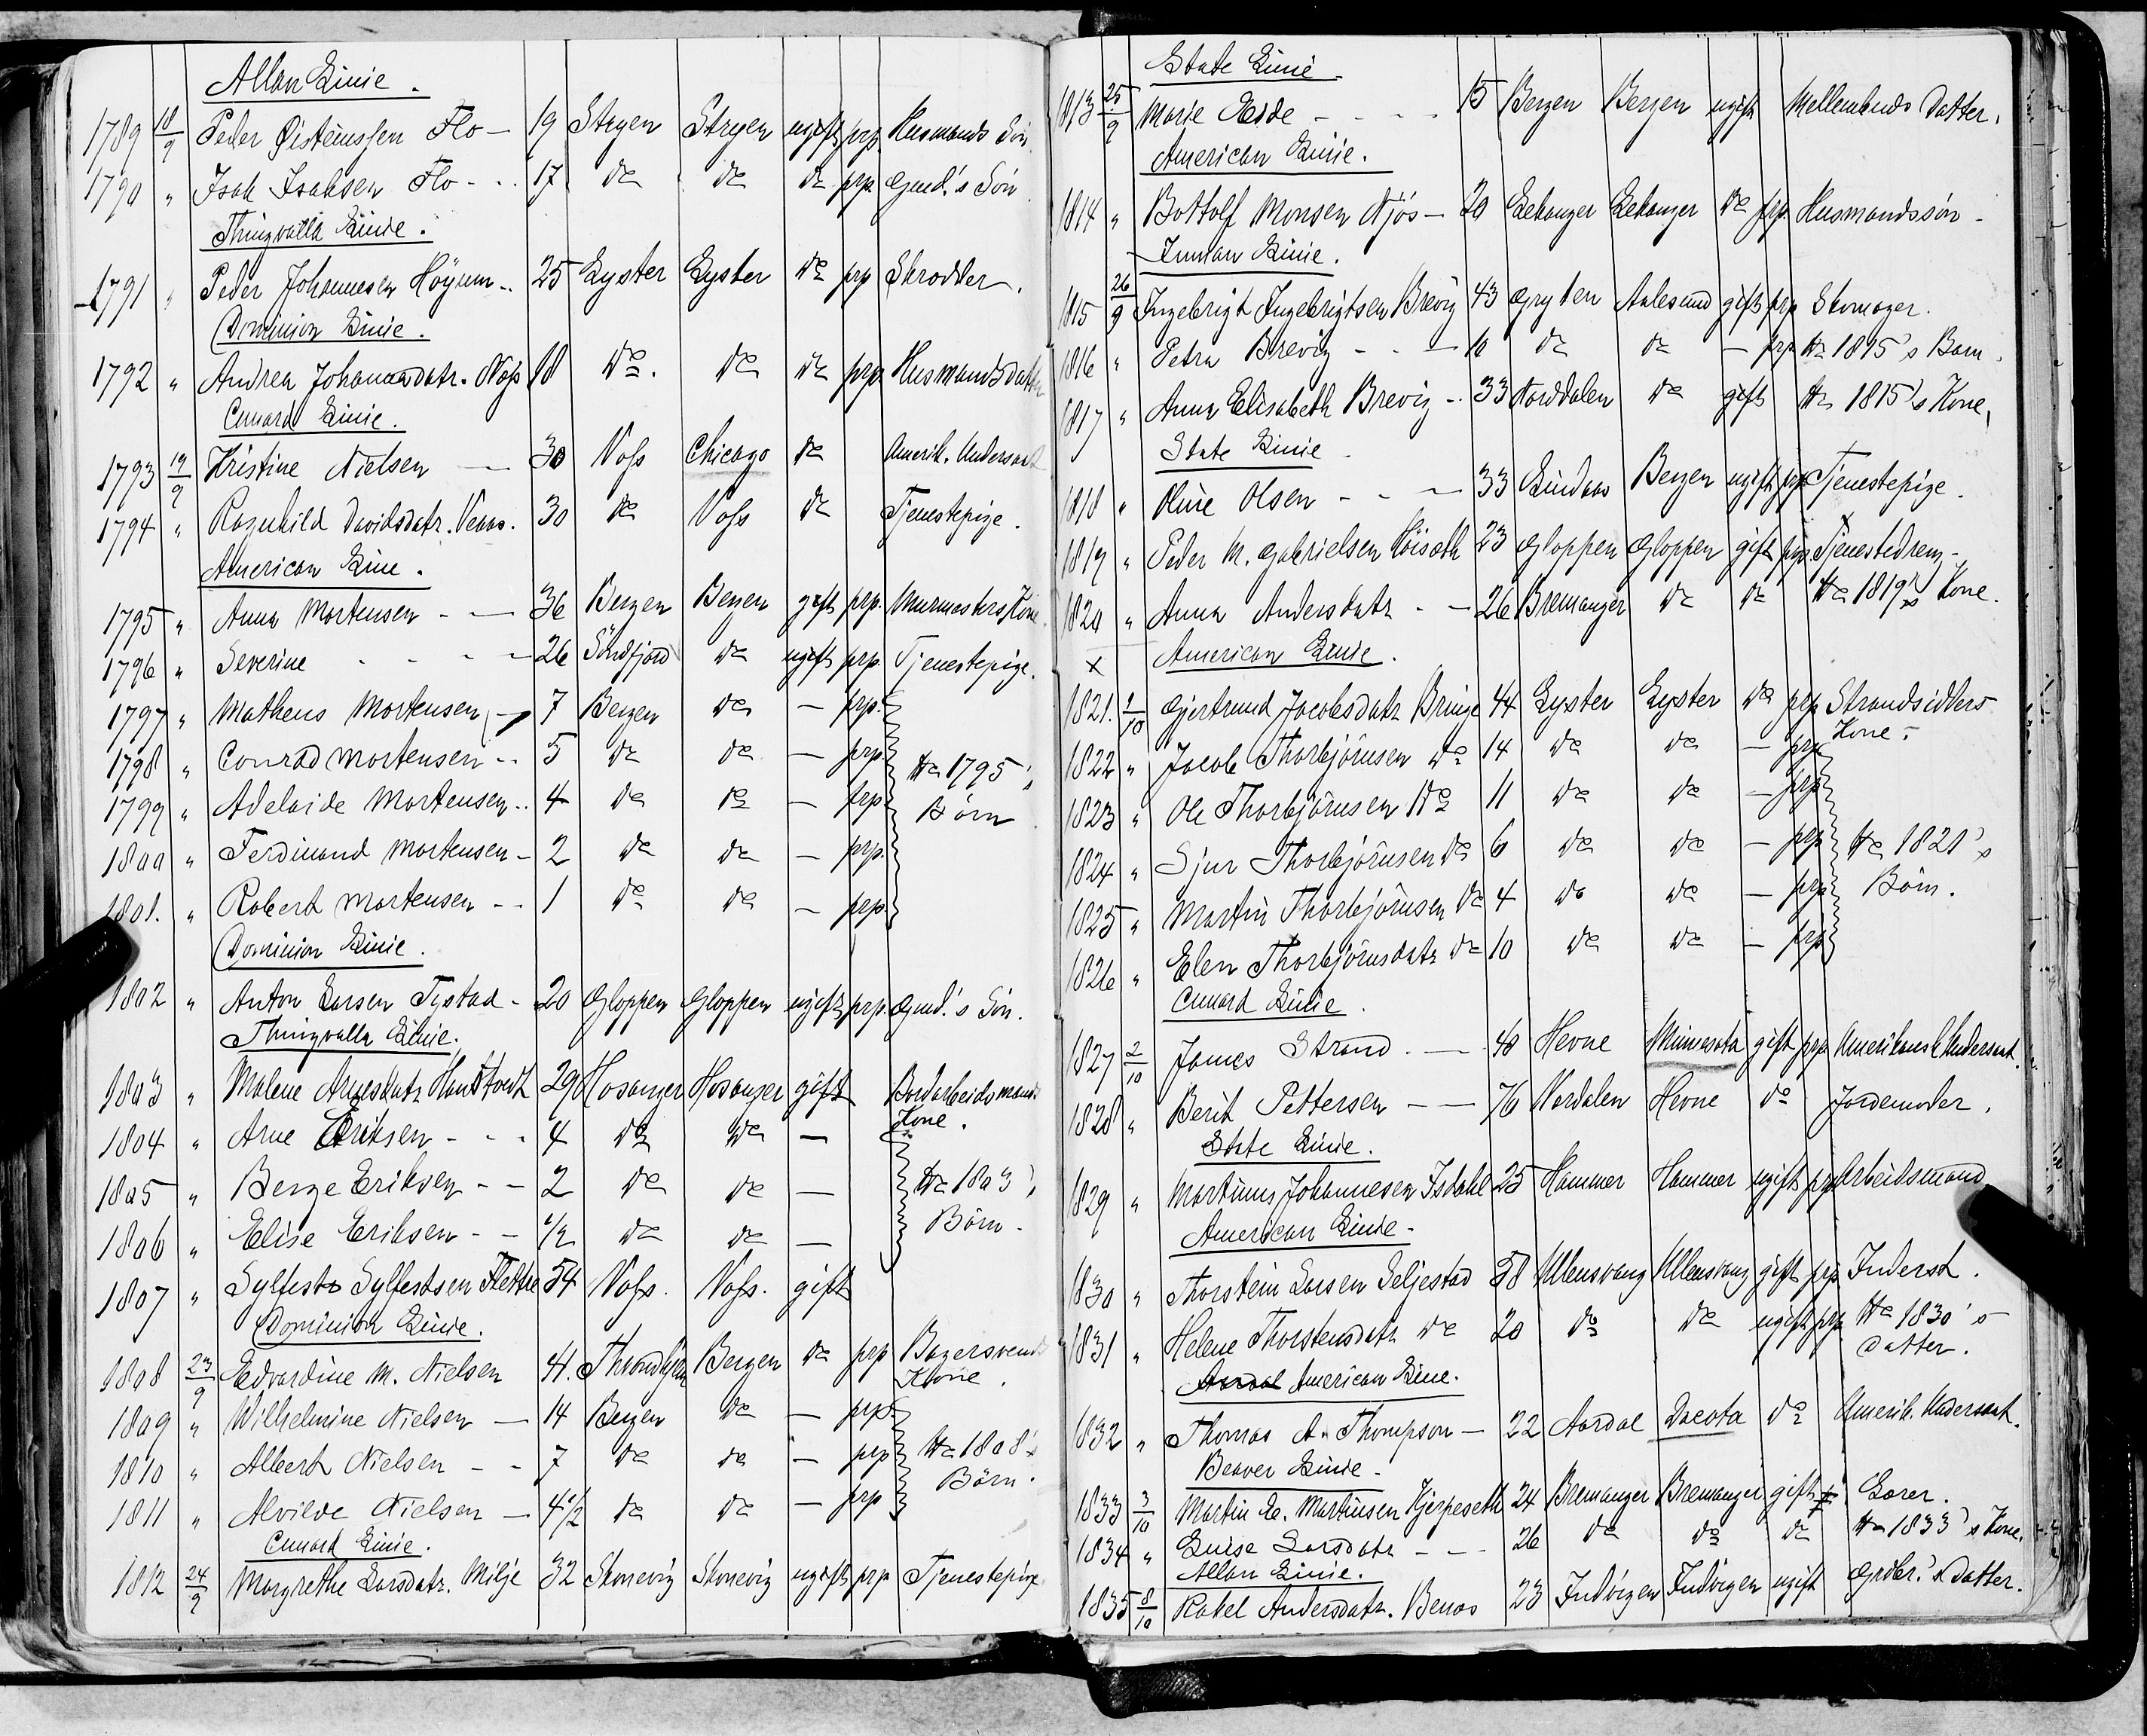 Allan Linie.
1789 18/9 Peder Øisteinssen Flo - 19 Stryen Stryen ugift prp. Husmands Søn
1790 " Isak Isaksen Flo - - 17 do do do prp. Gmd.'s Søn
Thingvalla Linie.
1791 " Peder Johannesen Höyum - 25 Lyster Lyster do prp Skrædder.
Dominion Linie.
1792 " Andrea Johannesdatr. 18 do. do do prp. Husmandsdatter
Cunard Linie.
1793 19/9 Kristine Nielsen - 30 Voss Chicago do Amerik. Undersaat
1794 " Ragnhild Davidsdatr. 30 do Voss do Tjenestepige.
American Line.
1795 " Anna Mortensen - - 36 Bergen Bergen gift prp. Murmesters Kone.
1796 " Severine - - - - 26 Söndfjord do ugift prp. Tjenestepige.
1797 " Matheus Mortensen - 7 Bergen do - prp.
1798 " Conrad Mortensen - - 5 do do - prp. No 1795's
1799 " Adelaide Mortensen - - 4 do do - prp Börn
1800 " Ferdinand Mortensen - 2 do do - prp.
1801. " Robert Mortensen - - 1 do do - prp.
Dominion Linie.
1802 " Anton Larsen Tystad - 20 Gloppen Gloppen ugift prp. Gmd.'s Sön.
Thingvalla Linie.
1803 " Malene Arnesdatr. 29 Hosanger Hosanger gift Jordarbeidsmands
Kone.
1804 " Arne Eriksen - - - 4 do do -
1805 " Berge Eriksen - - 2 do do - No 1803's
1806 " Elise Eriksen - - 1/2 do do - Börn -
1807 " Sylfest Sylfestsen Flettre 54 Voss. Voss. gift
Dominion Linie.
1808 23/9 Edvardine M. Nielsen 41. Throndhjem Bergen do prp Bagersvends
Kone.
1809 " Wilhelmine Nielsen - 14 Bergen do - prp.
1810 " Albert Nielsen - - 7 do do - prp No 1808's
1811 " Alvilde Nielsen - 4 1/2 do do - prp Börn.
Cunard Linie.
1812 24/9 Margrethe Larsdatr. Milje 32 Skonevig Skonevig ugift prp Tjenestepige
State Linie.
1813 25/9 Marie Eide - - - - 15 Bergen Bergen ugift Datter.
American Linie.
1814 " Bottolf Monsen Njös - 20 Lekanger Lekanger do prp. Husmandssøn -
Inman Linie.
1815 26/9 Ingebrigt Ingebrigtsen Brevig 43 Gryten Aalesund gift prp Skomager.
1816 " Petra Brevig - - - 10 do do - prp No 1815's Barn.
1817 " Anna Elisabeth Brevig - - 33 Norddalen do gift No 1815's Kone,
State Linie
1818 " Oline Olsen - - - 33 Lindaas Bergen ugift prp Tjenestepige.
1819 " Peder M. Gabrielsen Höisæth 23 Gloppen Gloppen gift prp Tjenestedreng -
1820 " Anna Andersdatr - - 26 Bremanger do do No 1819's Kone.
x American Linie.
1821. 1/10 Gjertrund Jacobsdatr Bringe 44 Lyster Lyster do prp Strandsidders
Kone -
1822 " Jacob Thorbjörnsen do 14 do do - prp
1823 " Ole Thorbjörnsen do 11 do do - prp
1824 " Sjur Thorbjörnsen do 6 do do - prp No 1821's
1825 " Martin Thorbjörnsen do 4 do do - prp Börn.
1826 " Elen Thorbjörnsdatr do 10 do do - prp
Cunard Linie.
1827 2/10 James Strand. - 48 Hevne Minnesota gift prp Amerikansk Undersaat.
1828 " Berit Pettersen - - 76 Nordalen Hevne do Jordemoder.
State Linie.
1829 " Martinus Johannesen Isdahl 25 Hammer Hammer ugift prp Arbeidsmand
American Linie -
1830 " Thorstein Larsen Seljestad 58 Ullensvang Ullensvang gift prp Inderst.
1831 " Helene Thorstensdatr do 20 do do ugift prp No 1830's
Datter.
Aardal American Line.
1832 " Thomas A. Thompson - 22 Aardal Dacota do Amerik. Undersaat.
Beaver Linie -
1833 3/10 Martin E. Martinsen Hjerpeseth 24 Bremanger Bremanger gift Lærer.
1834 " Luise Larsdatr - - - 26 do do do No 1833's Kone.
Allan Linie.
1835 8/10 Rakel Andersdatr. Benos 23 Indvigen Indvigen ugift Grdbr.'s Datter.